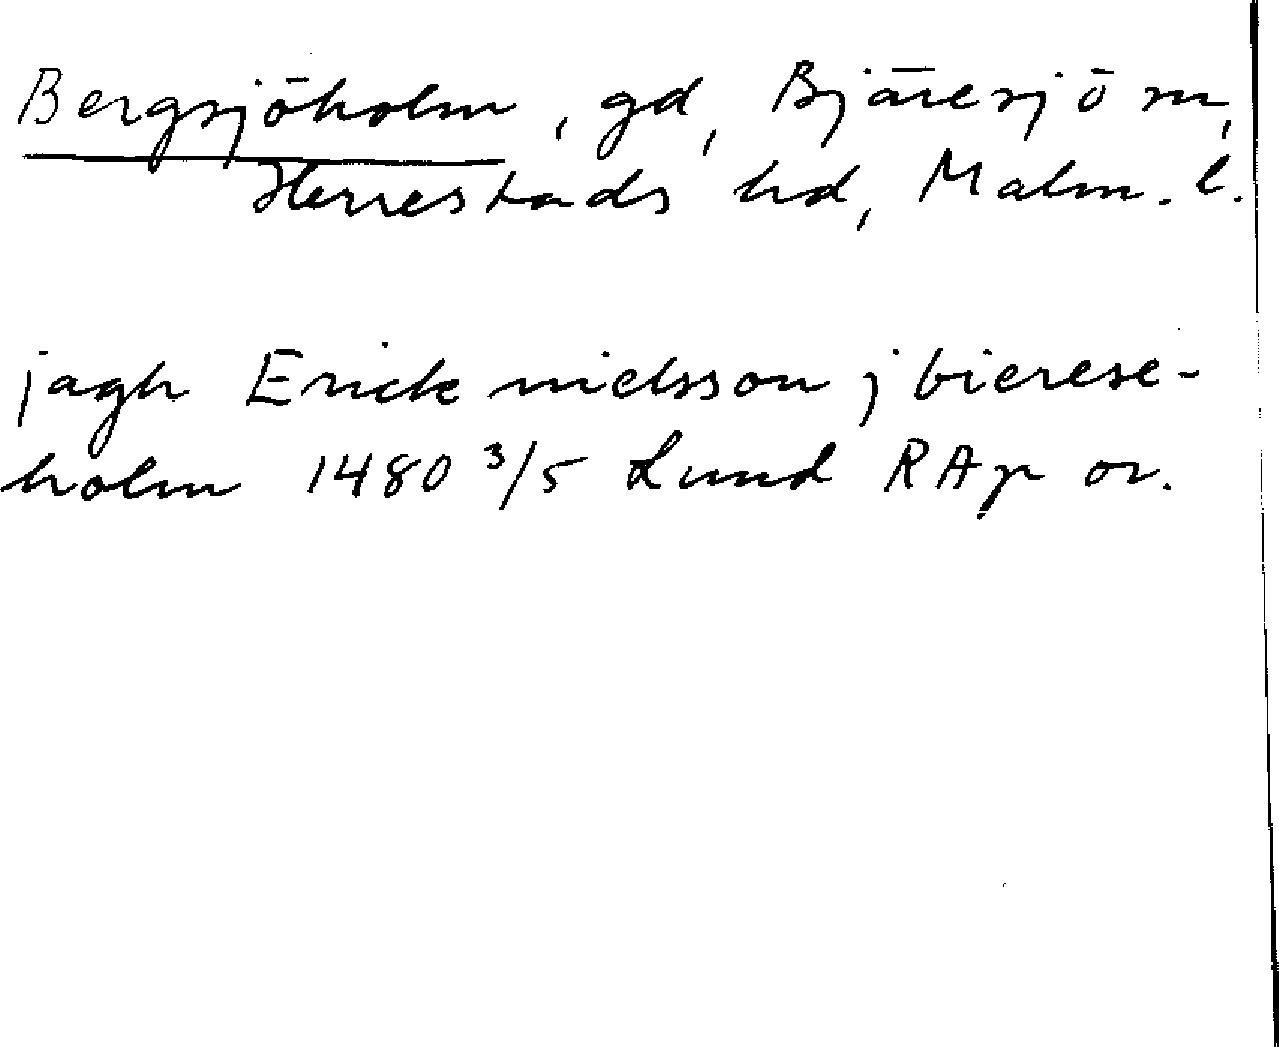 Bergsjöholm, gd, Bjäresjö sn,
Herrestads hd, Malm. l.
jagh Erick nielsson j bierese-
holm 1480 3/5 Lund RAp or.